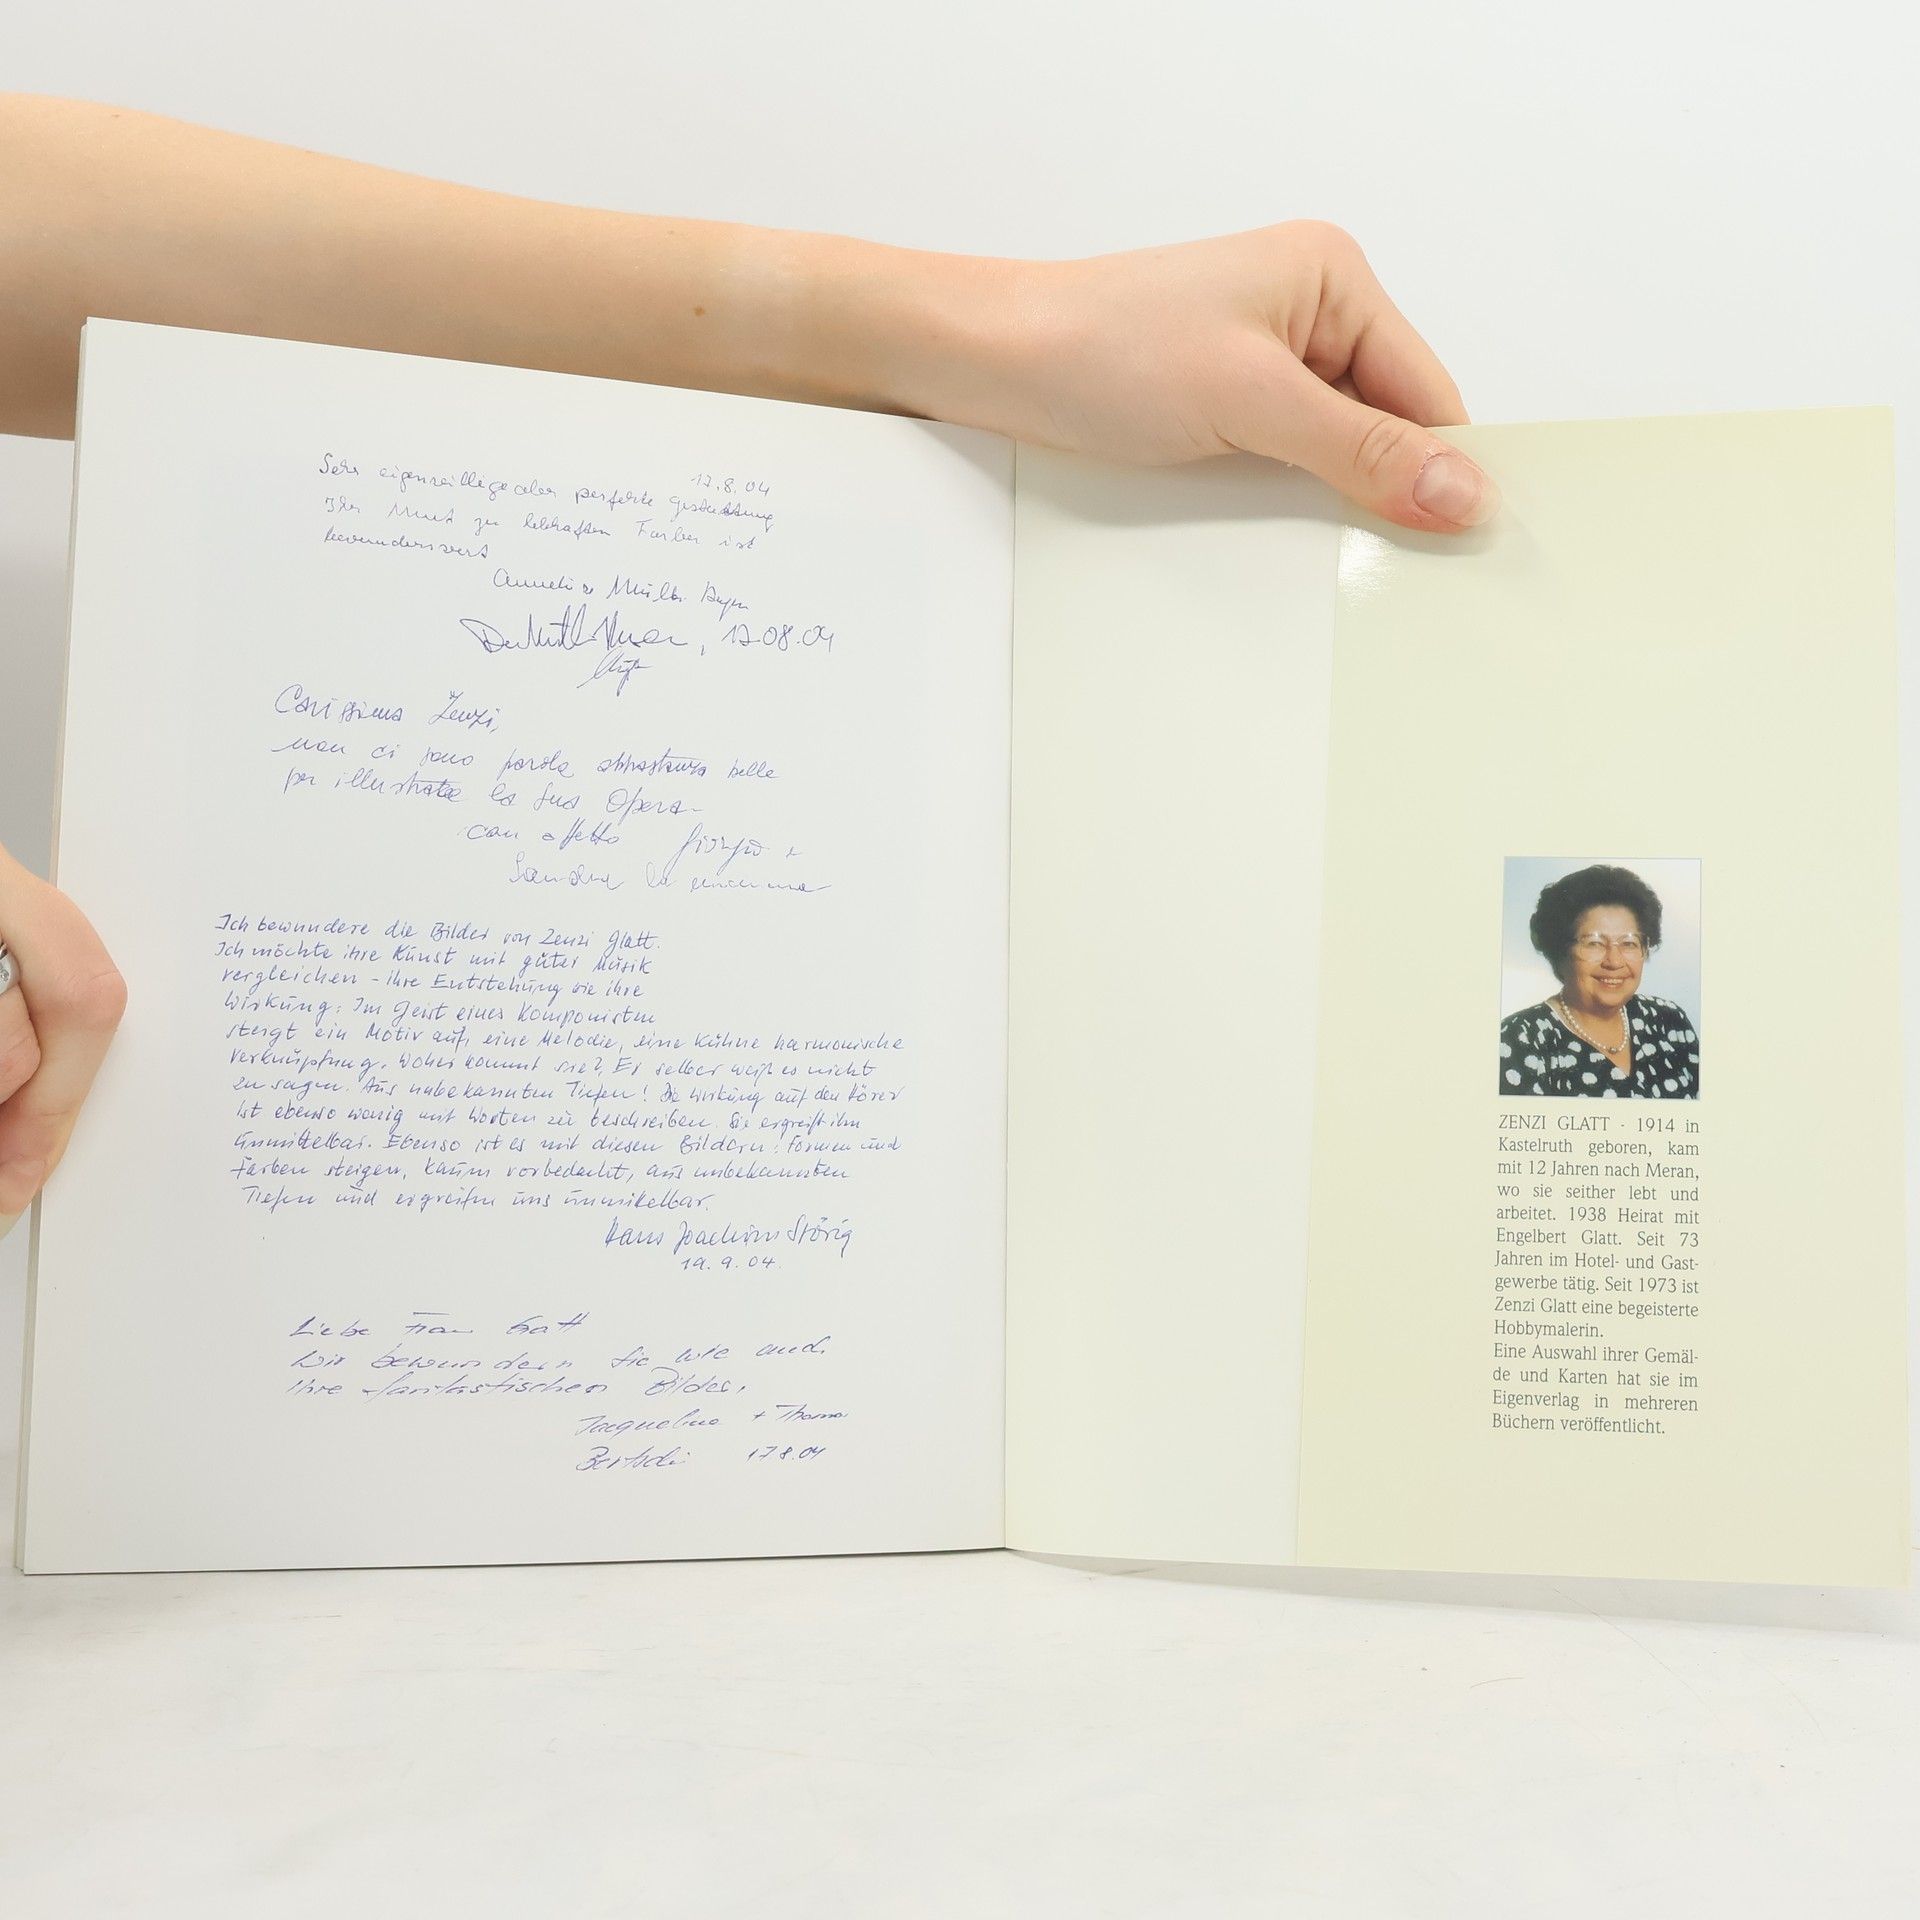 17.8.04
Sehr eigenwillige aber perfekte Gestaltung
Ihr Mut zu lebhaften Farben ist
bewundernswert
Annelise Müller
, 17.08.04
Carissima Zenzi,
non ci sono parole abbastanza belle
per illustrare la Sua Opera -
con affetto Giorgio e
Sandra la mamma
Ich bewundere die Bilder von Zenzi Glatt.
Ich möchte ihre Kunst mit guter Musik
vergleichen - ihre Entstehung wie ihre
Wirkung: Im Geist eines Komponisten
steigt ein Motiv auf, eine Melodie, eine kühne harmonische
Verknüpfung. Woher kommt sie? Er selber weiß es nicht
zu sagen. Aus unbekannten Tiefen! Die Wirkung auf den Hörer
ist ebenso wenig mit Worten zu beschreiben. Sie ergreift ihn
unmittelbar. Ebenso ist es mit diesen Bildern: Formen und
Farben steigen, kaum vorbedacht, aus unbekannten
Tiefen und ergreifen uns unmittelbar.
Hans Joachim Störig
19.9.04.
Liebe Frau Glatt
Wir bewundern Sie wie auch
Ihre fantastischen Bilder.
Jacqueline + Thomas
17.8.04
ZENZI GLATT - 1914 in
Kastelruth geboren, kam
mit 12 Jahren nach Meran,
wo sie seither lebt und
arbeitet. 1938 Heirat mit
Engelbert Glatt. Seit 73
Jahren im Hotel- und Gast-
gewerbe tätig. Seit 1973 ist
Zenzi Glatt eine begeisterte
Hobbymalerin.
Eine Auswahl ihrer Gemäl-
de und Karten hat sie im
Eigenverlag in mehreren
Büchern veröffentlicht.